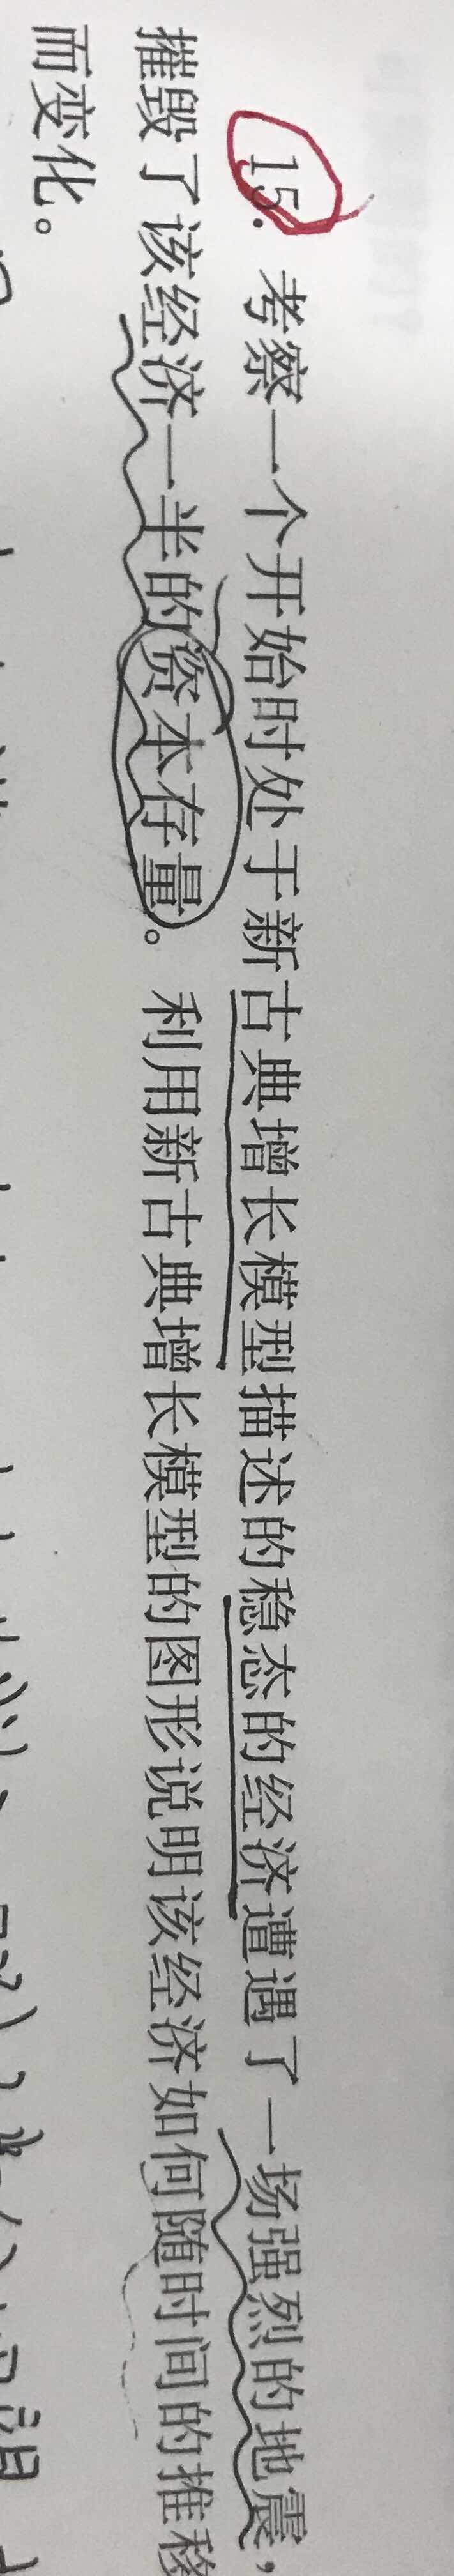 15. 考察一个开始时处于新古典增长模型描述的稳态的经济遭遇了一场强烈的地震，
摧毁了该经济一半的资本存量。利用新古典增长模型的图形说明该经济如何随时间的推移
而变化。